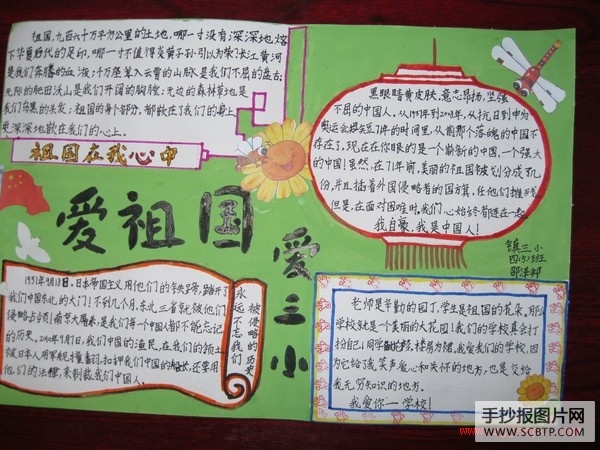 祖国,九百六十万平方公里的土地,哪一寸没有深深地烙
下华夏后代的足印,哪一寸不值得炎黄子孙引以为荣?长江黄河
是我们奔腾的血液;千万座耸入云霄的山脉是我们不屈的
无际的肥田沃土是我们开阔的胸膛;无边的森林草地是
我们乌黑的头发;祖国的每个部分,都
深深地
我们的心上。
祖国在我心中
爱祖国
爱三小
黑眼睛黄皮肤,意志昂扬,坚强
不屈的中国人。从1937年到2008年,从抗日到申办
奥运会
71年的时间里,从前那个落魄的中国不
存在了,现在在你眼的是一个崭新的中国,一个强大
的中国!虽然,在71年前,美丽的祖国被划分成了几
份,并且插着外国侵略者的国旗,任他们摧残。
但是,在面对困难时,我们心始终都连在一起。
我自豪,我是中国人!
镇三小
四(5)班
1931年9月18日,日本帝国主义用他们的铁蹄,踏开了
我们中国东北的大门!不到几个月,东北三省就被他们
侵略占领!南京大屠杀,是我们每个中国人都不能忘记
的历史。
我们中国的渔民,在我们的领土
被日本人用军舰撞
和押我们中国的船长,还要用
他们的法律,来制裁我们中国人。
被侵略的历史
永远不忘我们
老师是辛勤的园丁,学生是祖国的花朵,那么
学校就是一个美丽的大花园!我们的学校真会打
扮自己!
我爱我们的学校,因
为它给了我笑声爱心和关怀的地方,也是交给
我无穷知识的地方。
我爱你—学校!
手抄报图片网
WWW.SCBTP.COM